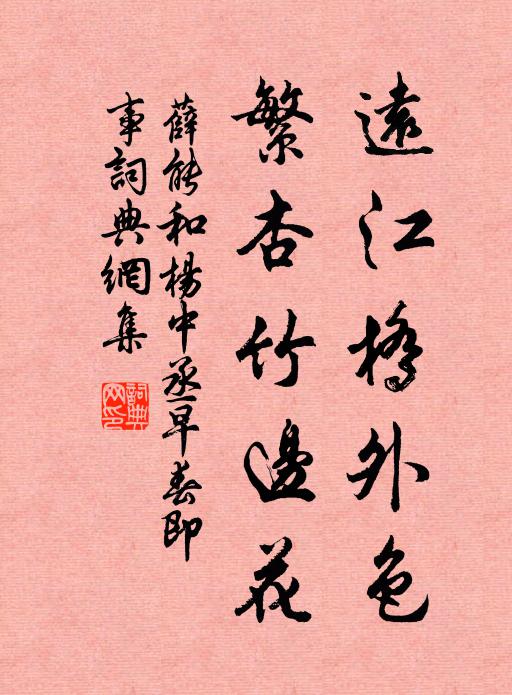 遠江橋外色
繁杏竹邊花
薛能和楊中丞早春即
事詞典網集
詞典網印